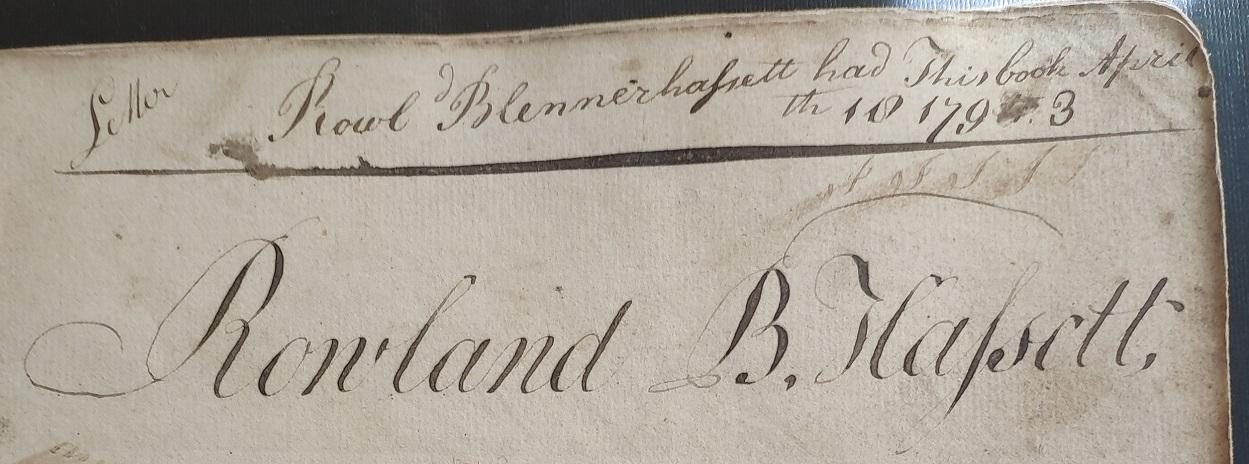 Letter Rowld Blennerhaſsett had This book April
th 18 179 3
Rowland B. Haſsett,